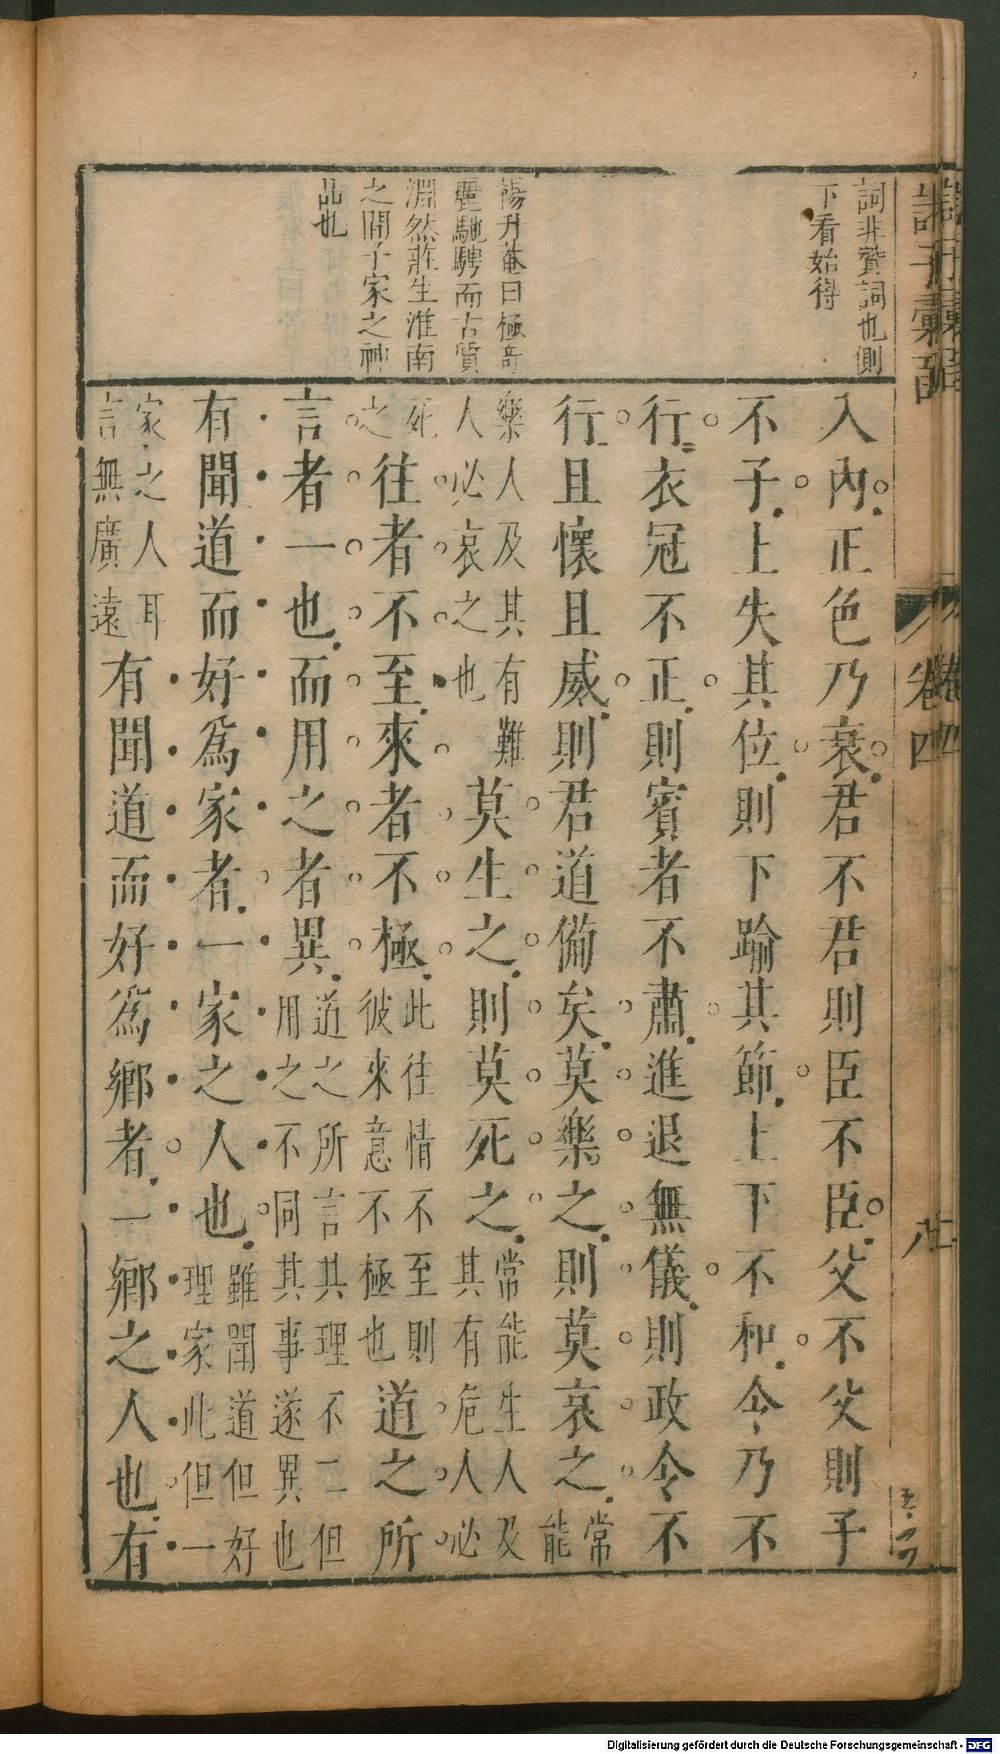 詞非贊詞也側
下看始得
楊升菴曰極奇
麗馳騁而古質
淵然莊生淮南
之間子家之神
品也
入內正色乃衰君不君則臣不臣父不父則子
不子上失其位則下踰其節上下不和令乃不
行衣冠不正則賓者不肅進退無儀則政令不
行且懷且威則君道備矣莫樂之則莫哀之常能
樂人及其有難人必哀之也莫生之則莫死之常能生人及其有危人人必
死之往者不至來者不極此往情不至則彼來意不極也道之所
言者一也而用之者異道之所言其理不二但用之不同其事遂異也
有聞道而好爲家者一家之人也雖聞道但好理家此但一
家之人耳言無廣遠有聞道而好爲鄉者一鄉之人也有
諸子彙函
卷四
八
Digitalisierung gefördert durch die Deutsche Forschungsgemeinschaft - DFG